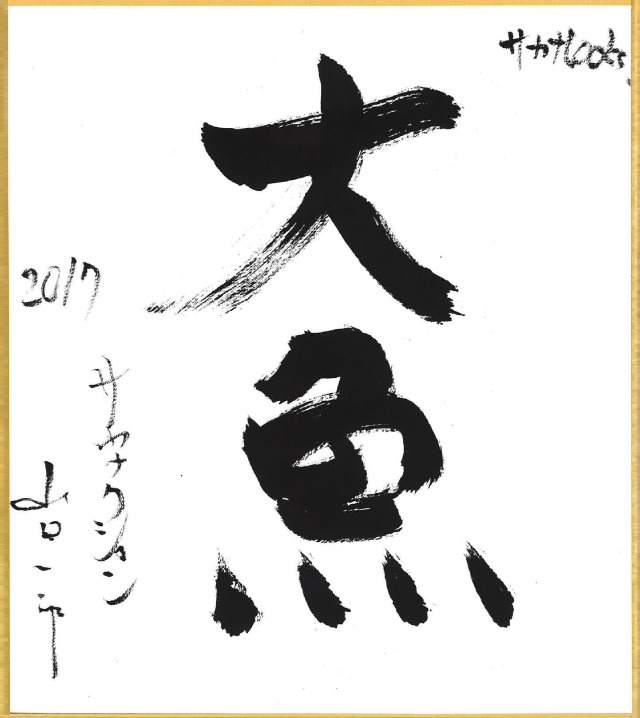 サカナLOCKS
大魚
2017
サカナクション
山口一郎